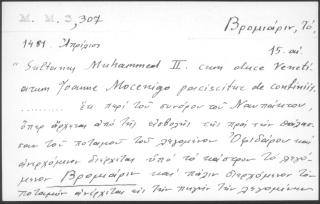 M. M. 3, 307
Βρομιάριν, Τό,
1481. Ἀπρίλιος
15. αἰ.
"Sultanus Muhammed II. cum duce Veneti-
arum Joanne Mocenigo paciscitur de confiniis.
......... Ἐκ περὶ τοῦ συνόρου τοῦ Ναυπάκτου
ὅπερ ἄρχεται ἀπὸ τῆς εἰσβολῆς τῆς πρὸς τὴν θάλασ-
σαν τοῦ ποταμοῦ τοῦ λεγομένου Ὀφιδάρου καὶ
ἀνερχόμενον διέρχεται ὑπὸ τὸ κάστρον τὸ λεγό-
μενον Βρομιάριν καὶ πάλιν διερχόμενον τὸν
ποταμὸν ἀνέρχεται εἰς τὴν πηγὴν τὴν λεγομένην